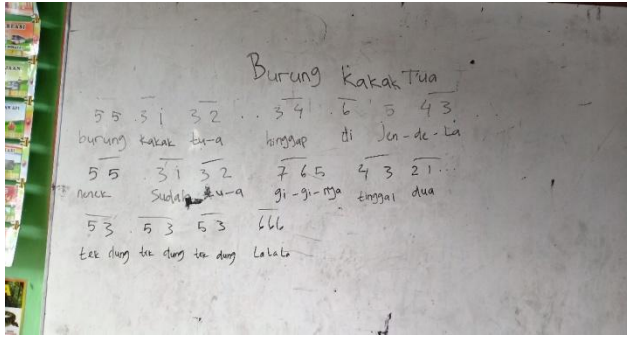 Burung Kakak Tua
5 5 . 3 i 3 2 . . 3 4 . 6 5 4 3
burung kakak tu-a hinggap di Jen-de-La
5 5 3 i 3 2 7 6 5 4 3 2 1 . .
nenek Sudah tu-a gi-gi-nya tinggal dua
5 3 . 5 3 5 3 6 6 6
tek dung tek dung tek dung Lalala